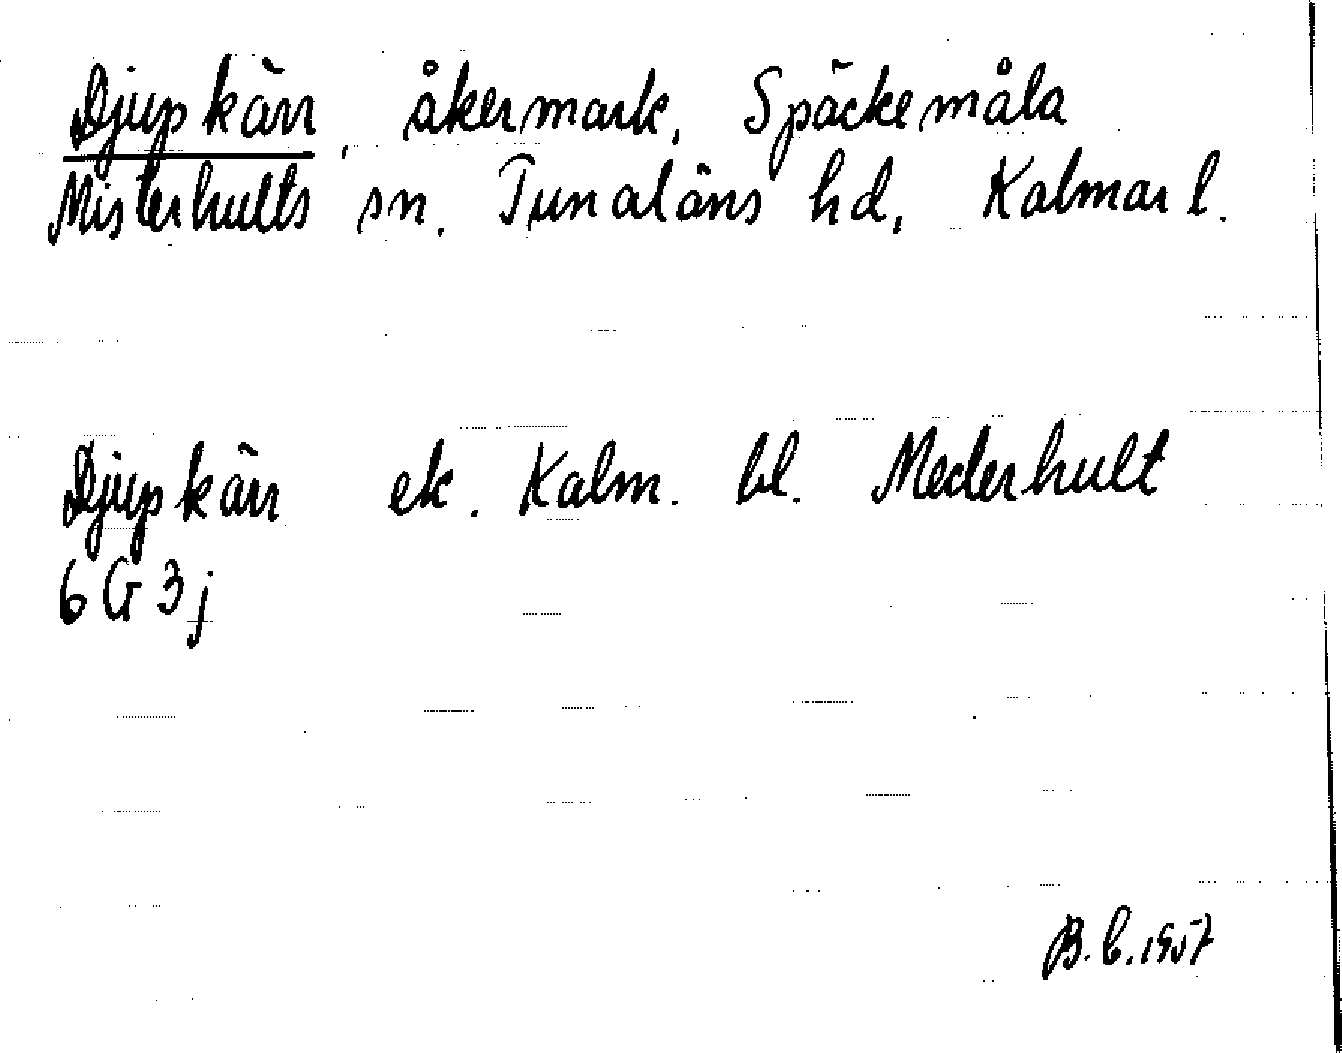 Djupkärr, åkermark, Späckemåla
Misterhults sn. Tunaläns hd, Kalmar l.
Djupkärr ek. Kalm. bl. Mederhult
6 G 3j
B. C. 1957